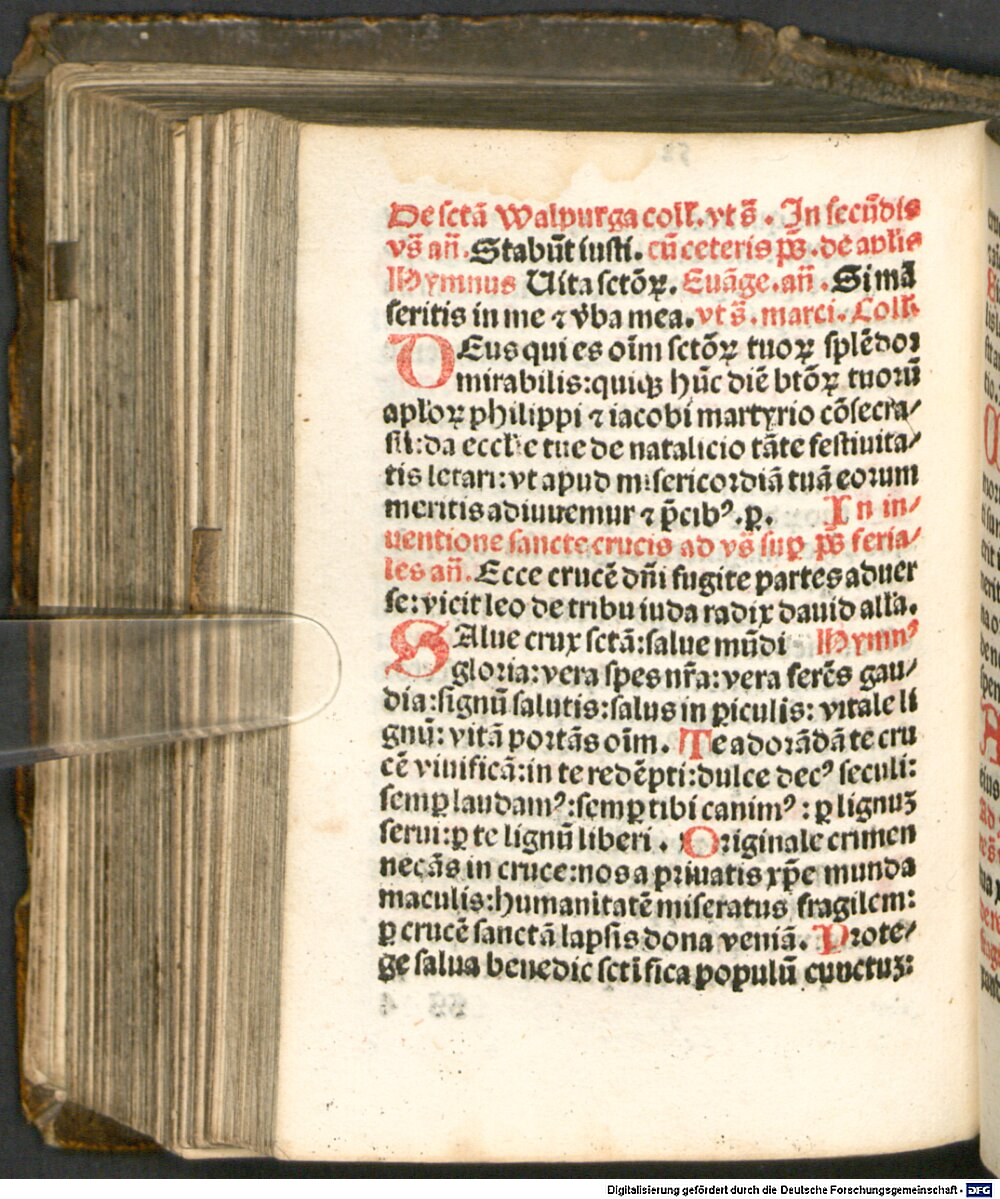 De sctā Walpurga coll̄. vt s̄. In secūdis
vs̄ an̄. Stabūt iusti. cū ceteris ps̄. de aplis
Hymnus Uita sctōꝝ. Euāge. an̄. Si mā
seritis in me ⁊ v̄ba mea. vt s̄. marci. Coll̄.
DEus qui es oīm sctōꝝ tuoꝝ splēdoꝛ
mirabilis: quiqꝫ hūc diē btōꝝ tuorū
aploꝝ philippi ⁊ iacobi martyrio cōsecra/
sti: da eccl̄ie tue de natalicio tāte festiuita/
tis letari: vt apud misericoꝛdiā tuā eoꝛum
meritis adiuuemur ⁊ p̄cibꝰ. ꝑ. In in/
uentione sancte crucis ad vs̄ suꝑ ps̄ feria/
les an̄. Ecce crucē dn̄i fugite partes aduer
se: vicit leo de tribu iuda radix dauid all̄a.
SAlue crux sctā: salue mūdi Hymnꝰ
gloꝛia: vera spes nr̄a: vera ferēs gau/
dia: signū salutis: salus in ꝑiculis: vitale li
gnū: vitā poꝛtās oīm. Te adoꝛādā te cru
cē viuificā: in te redēpti: dulce decꝰ seculi:
semꝑ laudamꝰ: semꝑ tibi canimꝰ: ꝑ lignuꝫ
serui: ꝑ te lignū liberi. Oꝛiginale crimen
necās in cruce: nos a pꝛiuatis xp̄e munda
maculis: humanitatē miseratus fragilem:
ꝑ crucē sanctā lapsis dona veniā. Pꝛote/
ge salua benedic sctīfica populū cunctuꝫ:
Digitalisierung gefördert durch die Deutsche Forschungsgemeinschaft - DFG